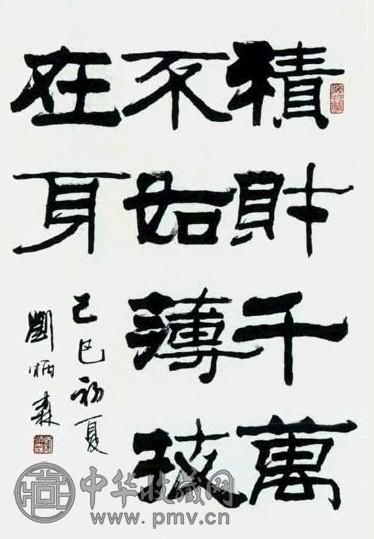 積財千萬
不如薄技
在身
己巳初夏
劉炳森
中华收藏网
www.pmv.cn